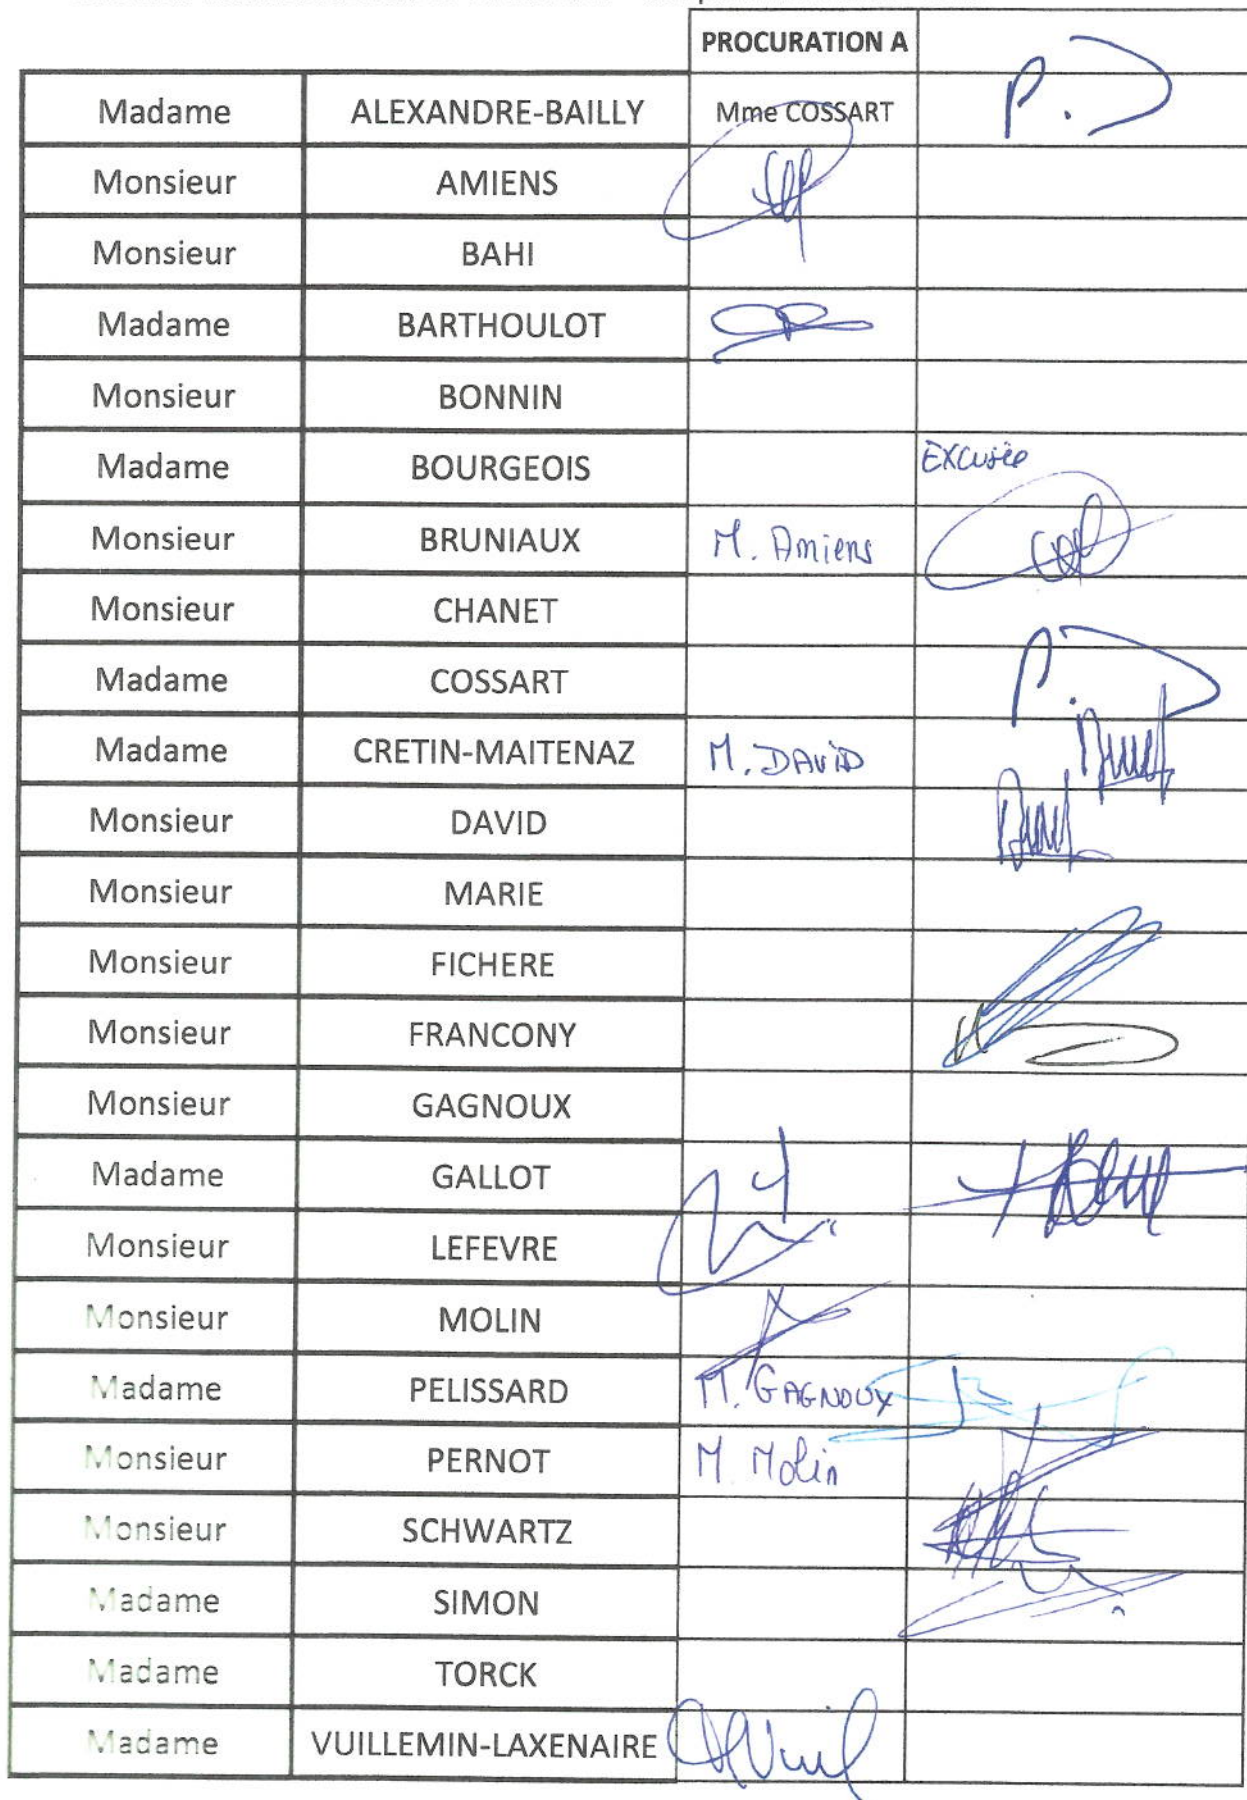 PROCURATION A
Madame ALEXANDRE-BAILLY Mme COSSART P.D
Monsieur AMIENS
Monsieur BAHI
Madame BARTHOULOT
Monsieur BONNIN
Madame BOURGEOIS Excusée
Monsieur BRUNIAUX M. Amiens
Monsieur CHANET
Madame COSSART P.D
Madame CRETIN-MAITENAZ M. DAVID
Monsieur DAVID
Monsieur MARIE
Monsieur FICHERE
Monsieur FRANCONY
Monsieur GAGNOUX
Madame GALLOT
Monsieur LEFEVRE
Monsieur MOLIN
Madame PELISSARD M. GAGNOUX
Monsieur PERNOT M. Molin
Monsieur SCHWARTZ
Madame SIMON
Madame TORCK
Madame VUILLEMIN-LAXENAIRE